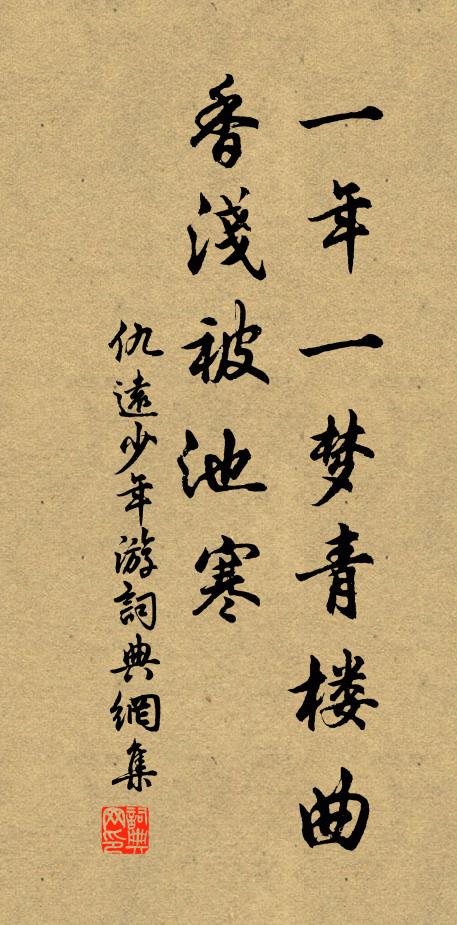 一年一梦青楼曲
香淺被池寒
仇遠少年游詞典網集
詞典网印